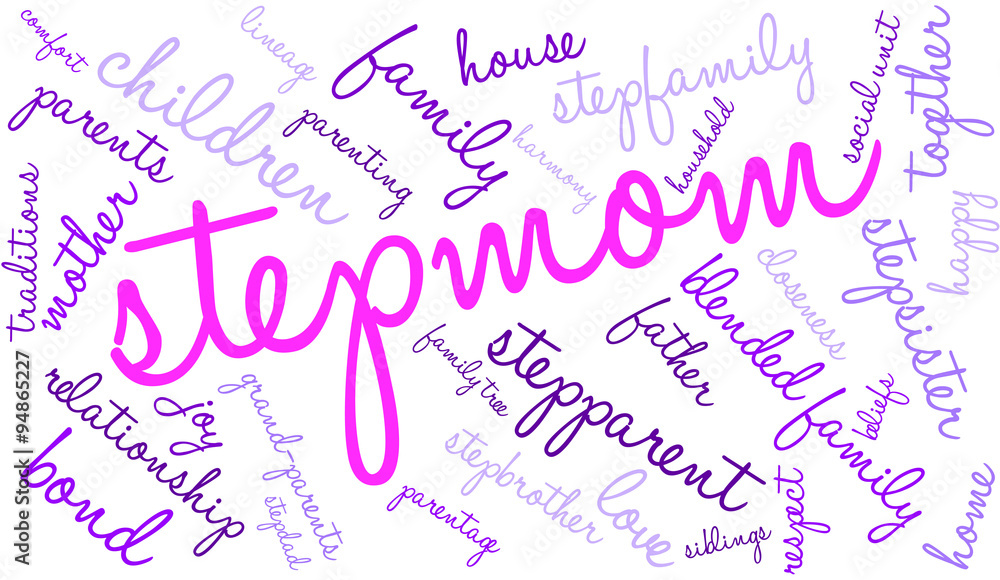 comfort
lineag
children
family
house
stepfamily
social unit
together
parents
parenting
harmony
household
stepmom
traditions
mother
happy
closeness
stepsister
blended family
father
family tree
stepparent
relationship
joy
grand-parents
beliefs
bond
stepdad
stepbrother
parentag
love
siblings
respect
home
Adobe Stock | #94865227